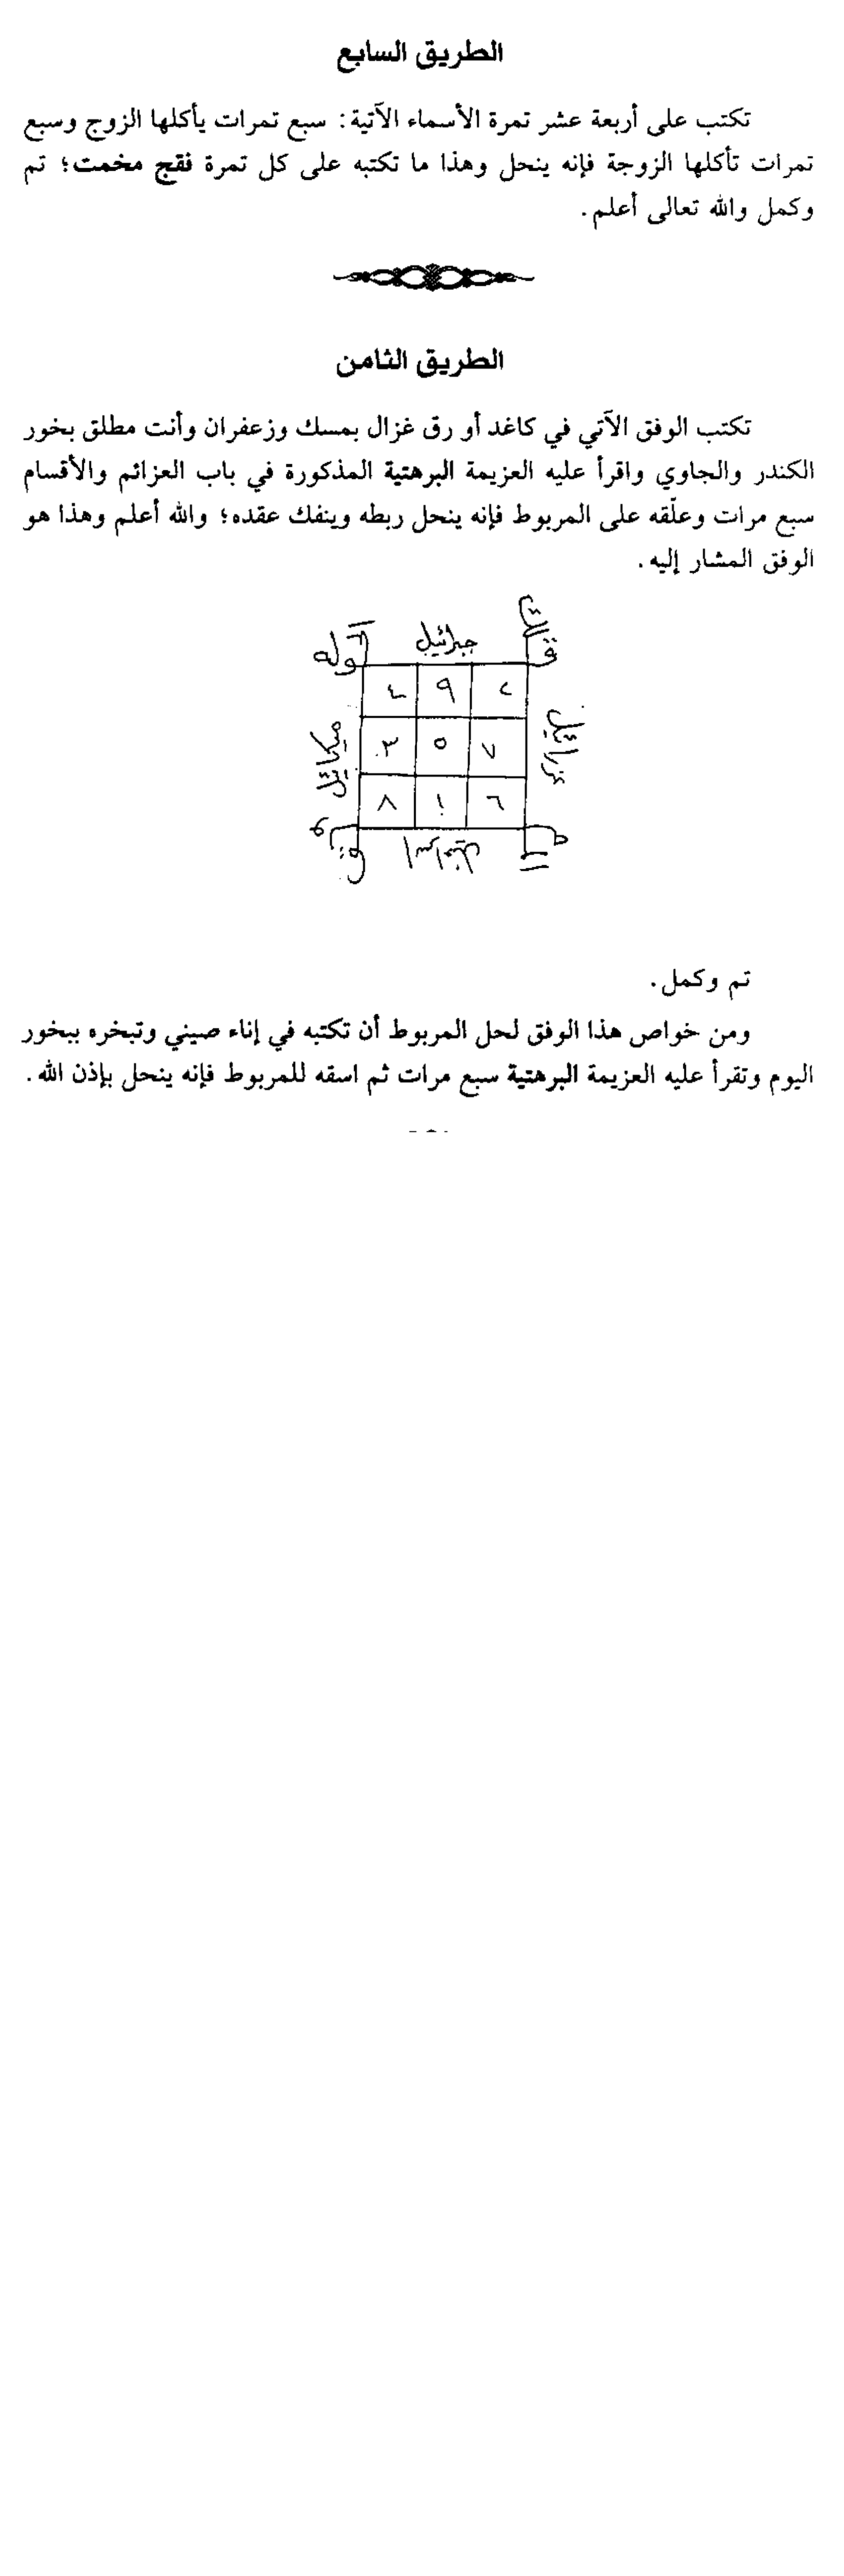 الطريق السابع
تكتب على أربعة عشر تمرة الأسماء الآتية: سبع تمرات يأكلها الزوج وسبع
تمرات تأكلها الزوجة فإنه ينحل وهذا ما تكتبه على كل تمرة فقج مخمت؛ تم
وكمل والله تعالى أعلم.
الطريق الثامن
تكتب الوفق الآتي في كاغد أو رق غزال بمسك وزعفران وأنت مطلق بخور
الكندر والجاوي واقرأ عليه العزيمة البرهتية المذكورة في باب العزائم والأقسام
سبع مرات وعلّقه على المربوط فإنه ينحل ربطه وينفك عقده؛ والله أعلم وهذا هو
الوفق المشار إليه.
جبرائيل
٤ ٩ ٢
عزرائيل
ميكائيل
٣ ٥ ٧
٨ ١ ٦
تم وكمل.
ومن خواص هذا الوفق لحل المربوط أن تكتبه في إناء صيني وتبخره ببخور
اليوم وتقرأ عليه العزيمة البرهتية سبع مرات ثم اسقه للمربوط فإنه ينحل بإذن الله.